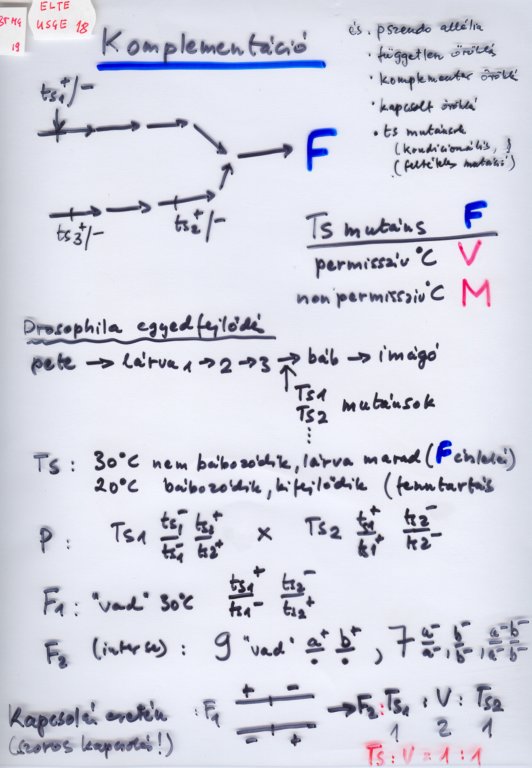 BTMG
19
ELTE
USGE 18
Komplementáció
és. pszendo allélia
• független öröklés
• komplementer öröklés
• kapcsolt öröklés
• ts mutánsok
(kondicionális,
(feltételes mutáció)
ts1+/-
F
ts3+/-
ts2+/-
Ts mutáns F
permisszív °C V
non permisszív °C M
Drosophila egyedfejlődés
pete → lárva 1 → 2 → 3 → báb → imágó
Ts1
Ts2 mutánsok
Ts: 30°C nem bábozódik, lárva marad (F
20°C bábozódik, kifejlődik (fenntartás
P: Ts1 ts1-/ts1- ts2+/ts2+ x Ts2 ts1+/ts1+ ts2-/ts2-
F1: "vad" 30°C ts1+/ts1- ts2-/ts2+
F2 (interse): 9 "vad" a+/. b+/. , 7 a-/a-, b-/b-, a-/a- b-/b-
Kapcsolás esetén : F1 + - → F2: Ts1 : V : Ts2
(szoros kapcsolás!) - + 1 2 1
Ts : V = 1 : 1